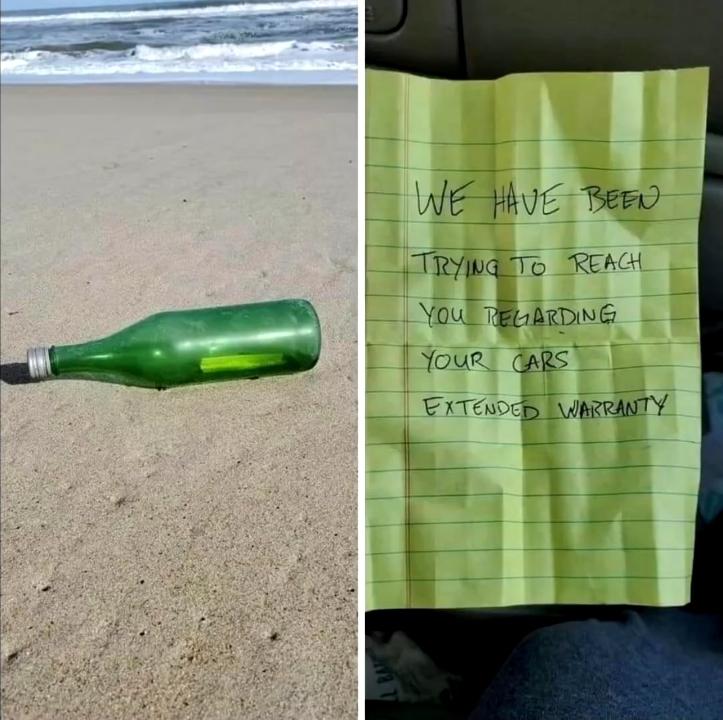 WE HAVE BEEN
TRYING TO REACH
YOU REGARDING
YOUR CARS
EXTENDED WARRANTY